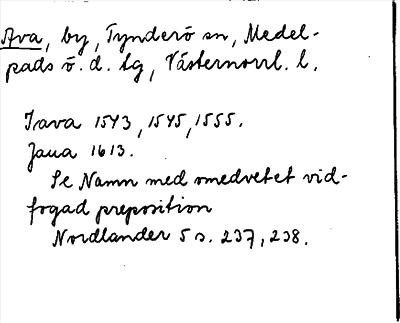 Ava, by, Tynderö sn, Medel-
pads ö. d. tg, Västernorrl. l.
Java 1543, 1545, 1555.
Jaua 1613.
Se Namn med omedvetet vid-
fogad preposition
Nordlander 5 s. 237, 238.